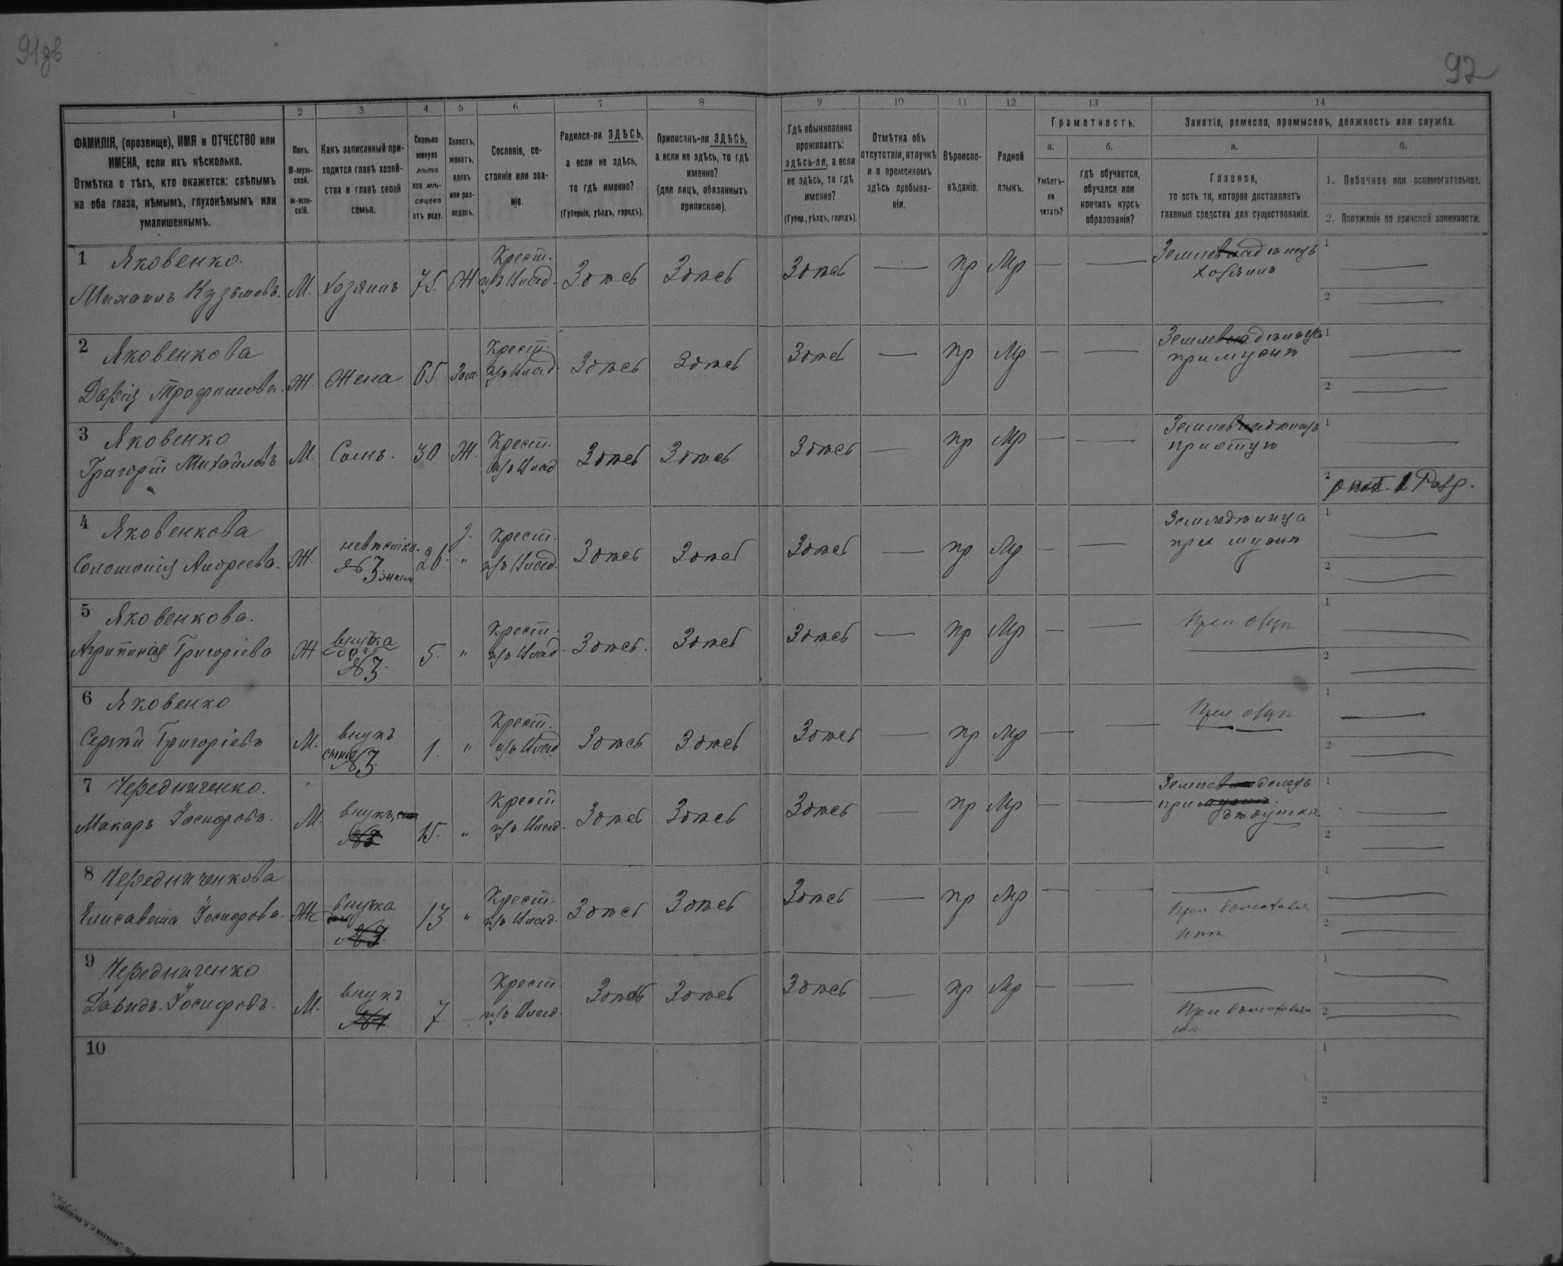 91зв
92
1 2 3 4 5 6 7 8 9 10 11 12 13 14
ФАМИЛІЯ, (прозвище), ИМЯ и ОТЧЕСТВО или
ИМЕНА, если ихъ нѣсколько.
Отмѣтка о тѣхъ, кто окажется: слѣпымъ
на оба глаза, нѣмымъ, глухонѣмымъ или
умалишеннымъ.
Полъ.
М-муж-
ской.
ж-жен-
скій.
Какъ записанный при-
ходится главѣ хозяй-
ства и главѣ своей
семьи.
Сколько
минуло
лѣтъ
или мѣ-
сяцевъ
отъ роду.
Холостъ,
женатъ,
вдовъ
или раз-
веденъ.
Сословіе, со-
стояніе или зва-
ніе.
Родился-ли ЗДѢСЬ,
а если не здѣсь,
то гдѣ именно?
(Губернія, уѣздъ, городъ).
Приписанъ-ли ЗДѢСЬ,
а если не здѣсь, то гдѣ
именно?
(для лицъ, обязанныхъ
припискою).
Гдѣ обыкновенно
проживаетъ:
здѣсь-ли, а если
не здѣсь, то гдѣ
именно?
(Губер., уѣздъ, городъ).
Отмѣтка объ
отсутствіи, отлучкѣ
и о временномъ
здѣсь пребыва-
ніи.
Вѣроиспо-
вѣданіе.
Родной
языкъ.
Грамотность.
а.
Умѣетъ-
ли
читать?
б.
гдѣ обучается,
обучался или
кончилъ курсъ
образованія?
Занятія, ремесло, промыселъ, должность или служба.
а.
Главное,
то есть то, которое доставляетъ
главныя средства для существованія.
б.
1. Побочное или вспомогательное.
2. Положеніе по воинской повинности.
1 Яковенко.
Михаилъ Кузьмовъ. М. хозяинъ 75. Ж Крест. изъ Влад. Здѣсь Здѣсь Здѣсь — пр Мр — — Земледѣлецъ хозяинъ 1 — 2 —
2 Яковенкова
Дарія Трофимова. Ж. Жена 65 Зам. Крест. изъ Влад Здѣсь Здѣсь Здѣсь — пр Мр — — при мужѣ 1 — 2 —
3 Яковенко
Григорій Михайловъ М. Сынъ. 30 Ж. Крест. изъ Влад Здѣсь Здѣсь Здѣсь — пр Мр — — при отцѣ 1 — 2 опол. 1 Разр.
4 Яковенкова
Соломонія Андреева. Ж. невѣстка. №3 жена 26. З. " Крест. изъ Влад. Здѣсь Здѣсь Здѣсь — пр Мр — — при мужѣ 1 — 2 —
5 Яковенкова.
Агрипина Григоріева Ж внучка дочь №3. 5. " Крест изъ Влад. Здѣсь. Здѣсь Здѣсь — пр Мр — — При отцѣ 1 — 2 —
6 Яковенко
Сергѣй Григоріевъ М. внукъ сынъ №3 1. " Крест. изъ Влад Здѣсь Здѣсь Здѣсь — пр Мр — — При отцѣ 1 — 2 —
7 Чередниченко.
Макаръ Іосифовъ. М. внукъ, 15. " Крест изъ Влад. Здѣсь Здѣсь Здѣсь — пр Мр — — при дѣдушкѣ 1 — 2 —
8 Чередниченкова
Елисавета Іосифова. Ж внучка 13 " Крест. изъ Влад. Здѣсь Здѣсь Здѣсь — пр Мр — — — При 1 — 2 —
9 Чередниченко
Давидъ Іосифовъ. М. внукъ 7 — Крест изъ Влад. Здѣсь Здѣсь Здѣсь — пр Мр — — — При 1 — 2 —
10 1 2